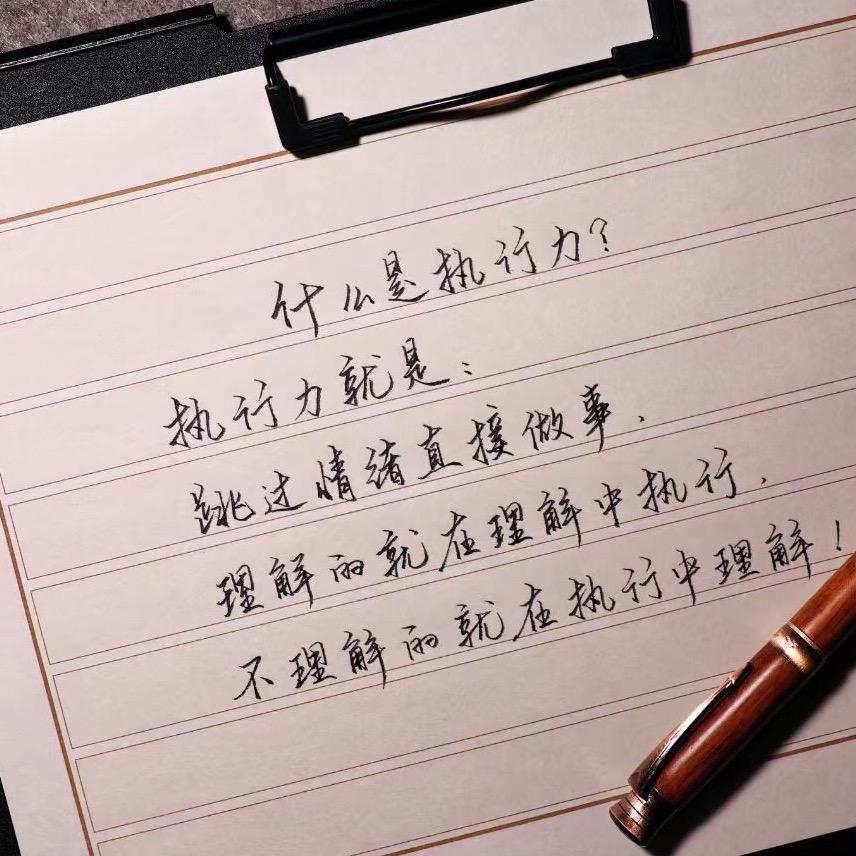 什么是执行力?
执行力就是:
跳过情绪直接做事.
理解的就在理解中执行.
不理解的就在执行中理解!